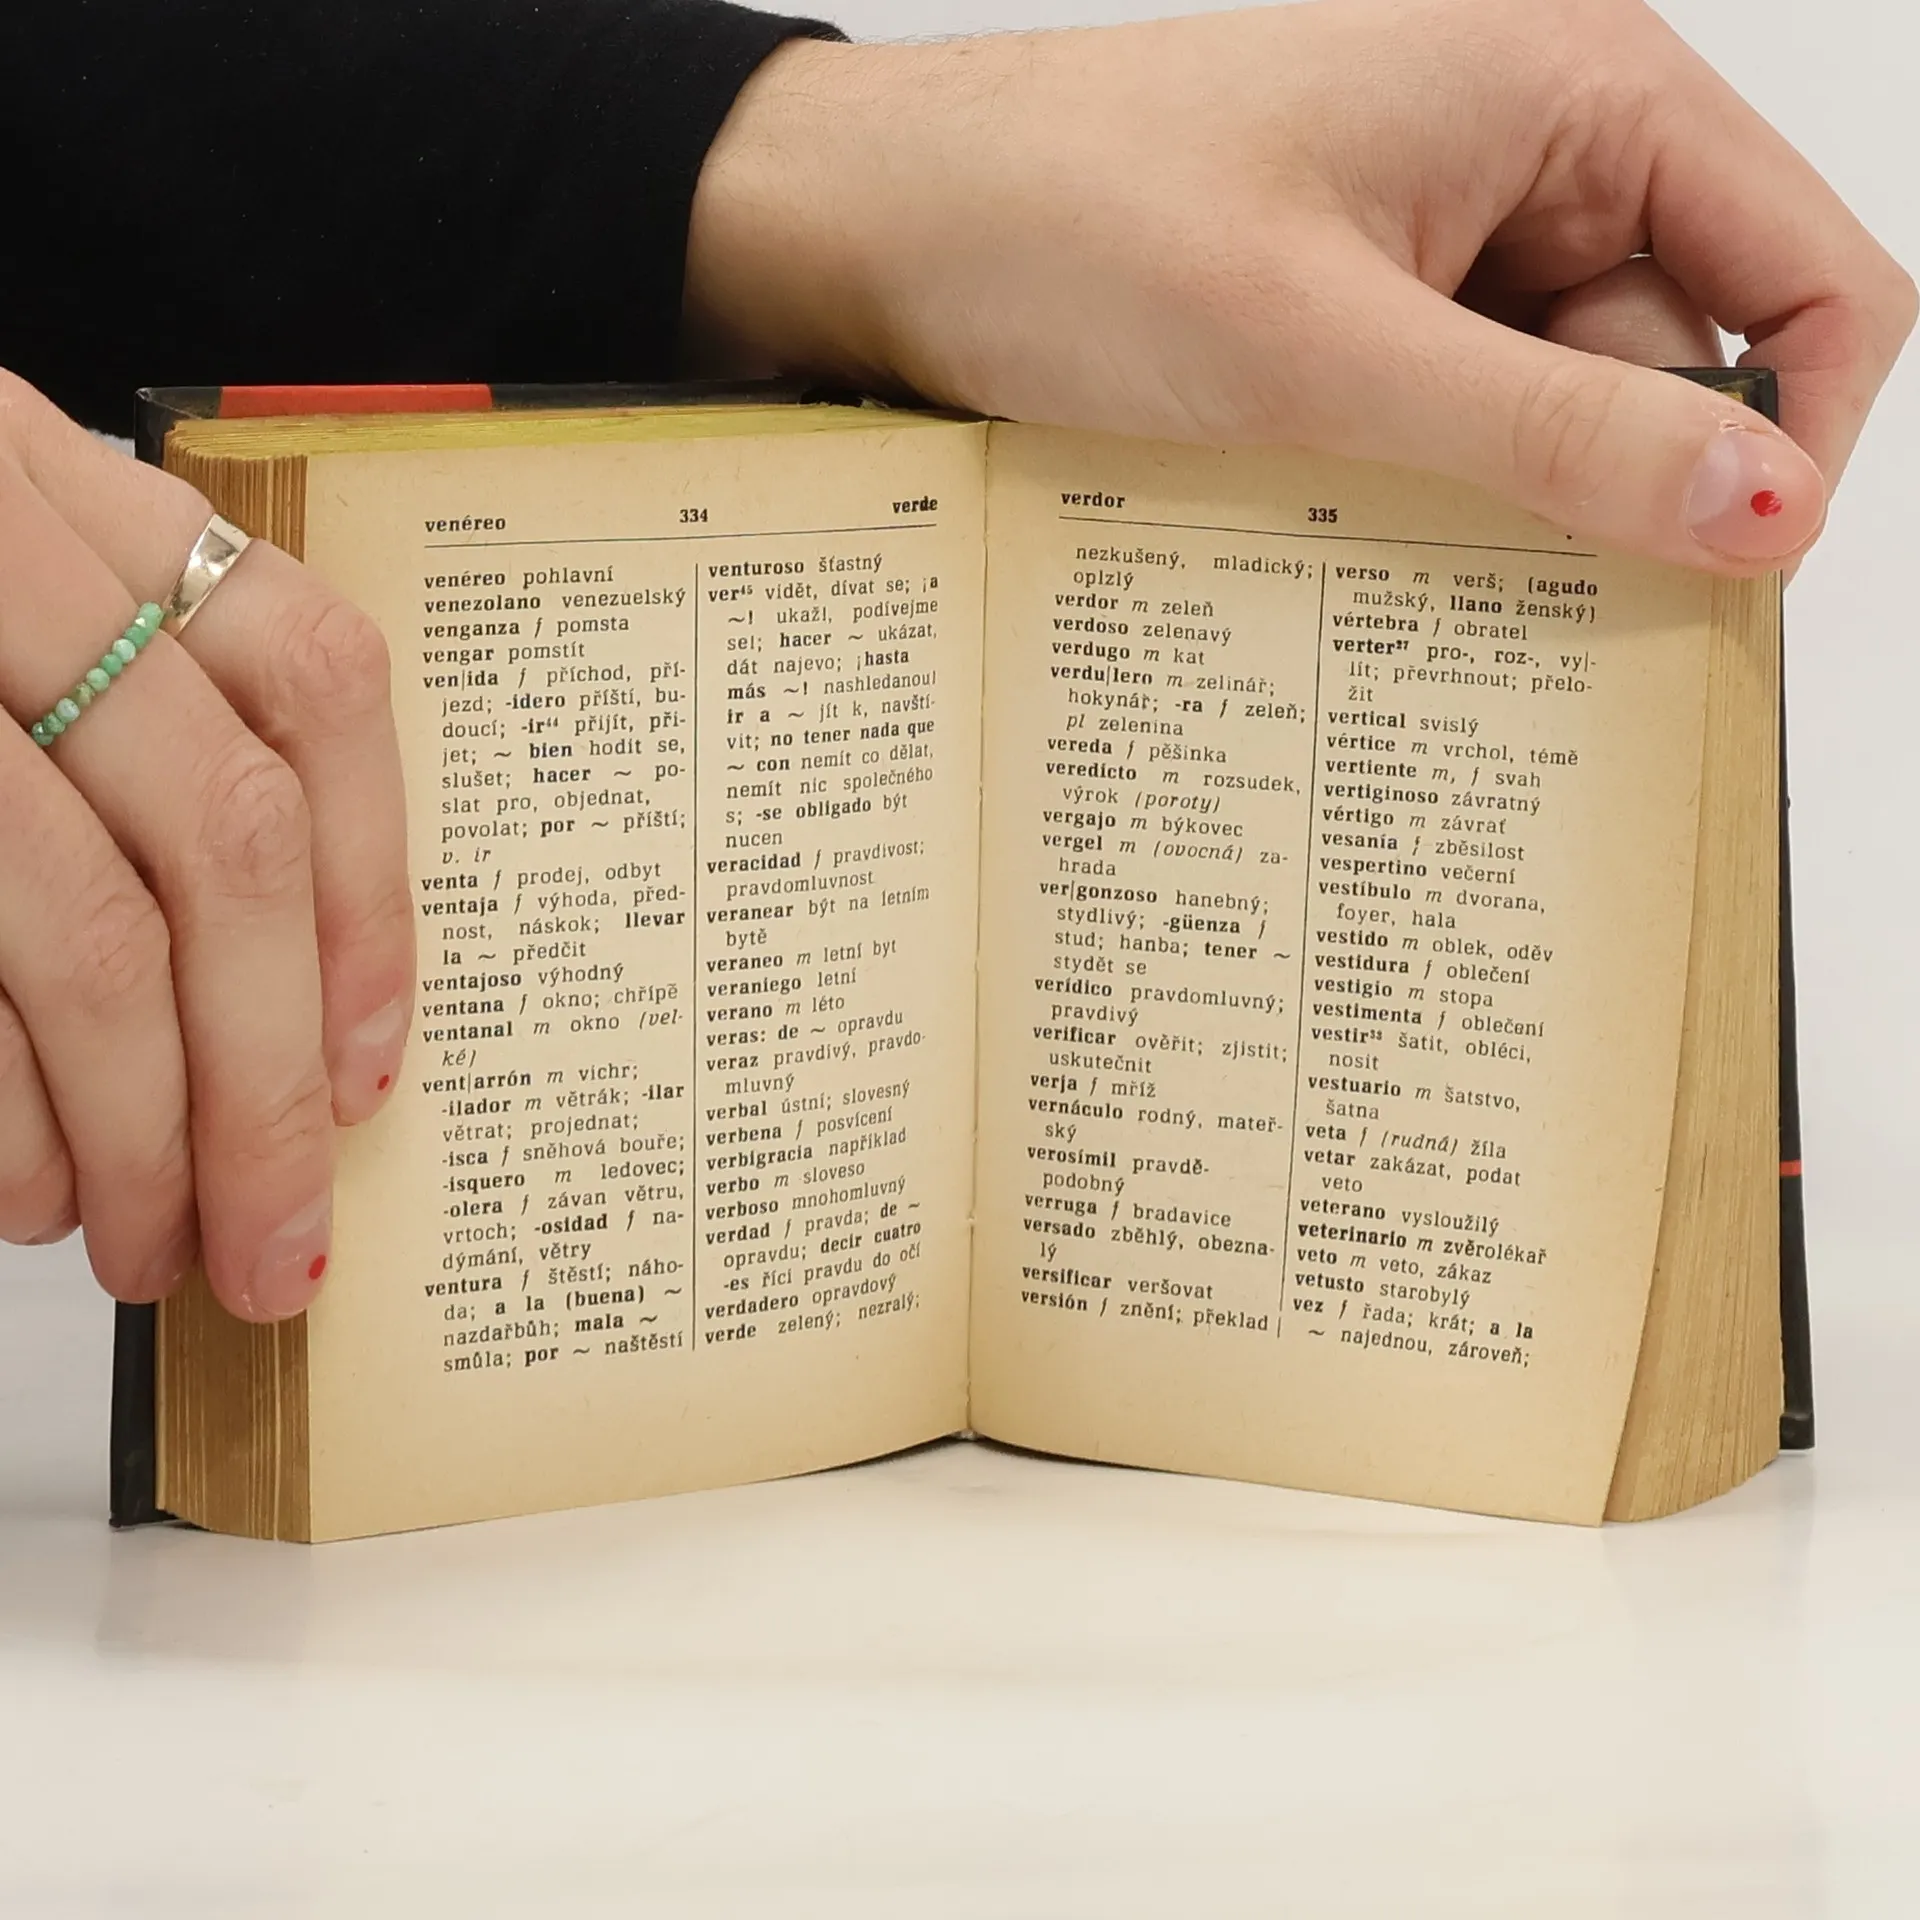 venéreo 334 verde
venéreo pohlavní
venezolano venezuelský
venganza f pomsta
vengar pomstít
ven|ida f příchod, pří-
jezd; -idero příští, bu-
doucí; -ir⁴⁴ přijít, při-
jet; ~ bien hodit se,
slušet; hacer ~ po-
slat pro, objednat,
povolat; por ~ příští;
v. ir
venta f prodej, odbyt
ventaja f výhoda, před-
nost, náskok; llevar
la ~ předčit
ventajoso výhodný
ventana f okno; chřípě
ventanal m okno (vel-
ké)
vent|arrón m vichr;
-ilador m větrák; -ilar
větrat; projednat;
-isca f sněhová bouře;
-isquero m ledovec;
-olera f závan větru,
vrtoch; -osidad f na-
dýmání, větry
ventura f štěstí; náho-
da; a la (buena) ~
nazdařbůh; mala ~
smůla; por ~ naštěstí
venturoso šťastný
ver⁴⁵ vidět, dívat se; ¡a
~! ukaž!, podívejme
se!; hacer ~ ukázat,
dát najevo; ¡hasta
más ~! nashledanou!
ir a ~ jít k, navští-
vit; no tener nada que
~ con nemít co dělat,
nemít nic společného
s; -se obligado být
nucen
veracidad f pravdivost;
pravdomluvnost
veranear být na letním
bytě
veraneo m letní byt
veraniego letní
verano m léto
veras: de ~ opravdu
veraz pravdivý, pravdo-
mluvný
verbal ústní; slovesný
verbena f posvícení
verbigracia například
verbo m sloveso
verboso mnohomluvný
verdad f pravda; de ~
opravdu; decir cuatro
-es říci pravdu do očí
verdadero opravdový
verde zelený; nezralý;
verdor 335
nezkušený, mladický;
oplzlý
verdor m zeleň
verdoso zelenavý
verdugo m kat
verdu|lero m zelinář;
hokynář; -ra f zeleň;
pl zelenina
vereda f pěšinka
veredicto m rozsudek,
výrok (poroty)
vergajo m býkovec
vergel m (ovocná) za-
hrada
ver|gonzoso hanebný;
stydlivý; -güenza f
stud; hanba; tener ~
stydět se
verídico pravdomluvný;
pravdivý
verificar ověřit; zjistit;
uskutečnit
verja f mříž
vernáculo rodný, mateř-
ský
verosímil pravdě-
podobný
verruga f bradavice
versado zběhlý, obezna-
lý
versificar veršovat
versión f znění; překlad
verso m verš; (agudo
mužský, llano ženský)
vértebra f obratel
verter²⁷ pro-, roz-, vy|-
lít; převrhnout; přelo-
žit
vertical svislý
vértice m vrchol, témě
vertiente m, f svah
vertiginoso závratný
vértigo m závrať
vesania f zběsilost
vespertino večerní
vestíbulo m dvorana,
foyer, hala
vestido m oblek, oděv
vestidura f oblečení
vestigio m stopa
vestimenta f oblečení
vestir³³ šatit, obléci,
nosit
vestuario m šatstvo,
šatna
veta f (rudná) žíla
vetar zakázat, podat
veto
veterano vysloužilý
veterinario m zvěrolékař
veto m veto, zákaz
vetusto starobylý
vez f řada; krát; a la
~ najednou, zároveň;